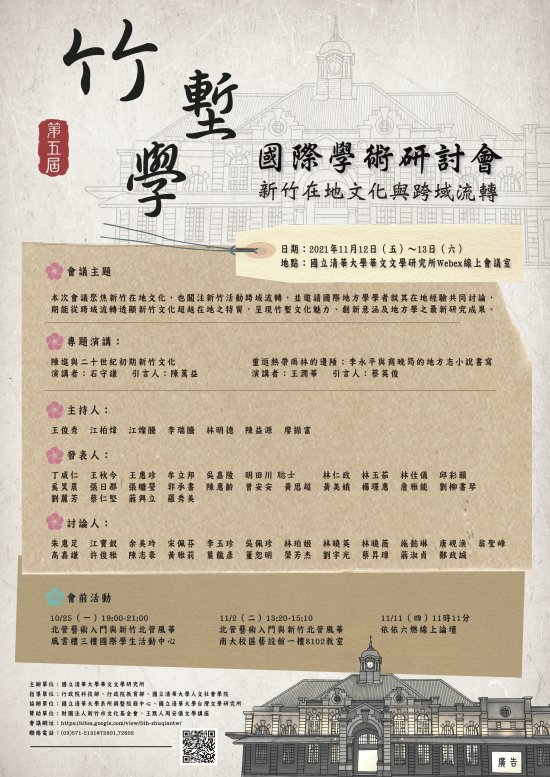 竹塹學
第五屆
國際學術研討會
新竹在地文化與跨域流轉
日期：2021年11月12日（五）～13日（六）
地點：國立清華大學華文文學研究所Webex線上會議室
會議主題
本次會議聚焦新竹在地文化，也關注新竹活動跨域流轉，並邀請國際地方學學者就其在地經驗共同討論，
期能從跨域流轉透顯新竹文化超越在地之特質，呈現竹塹文化魅力、創新意涵及地方學之最新研究成果。
專題演講：
陳進與二十世紀初期新竹文化
演講者：石守謙 引言人：陳萬益
重返熱帶雨林的邊陲：李永平與商晚筠的地方志小說書寫
演講者：王潤華 引言人：蔡英俊
主持人：
王俊秀 江柏煒 江燦騰 李瑞騰 林明德 陳益源 廖振富
發表人：
丁威仁 王秋今 王惠珍 牟立邦 吳嘉陵 明田川聡士 林仁政 林玉茹 林佳儀 邱彩韻
吳昊晨 張日郡 張繼瑩 郭承書 陳惠齡 曾安安 黃思超 黃美娥 楊璟惠 詹雅能 劉柳書琴
劉麗芳 蔡仁堅 蔣興立 羅秀美
討論人：
朱惠足 江寶釵 余美玲 宋佩芬 李玉珍 吳佩珍 林珀姬 林曉英 林曉薇 施懿琳 唐硯漁 翁聖峰
高嘉謙 許俊雅 陳志豪 黃雅莉 葉龍彥 董恕明 榮芳杰 劉宇光 蔡昇璋 蔣淑貞 鄭政誠
會前活動
10/25（一）19:00-21:00
北管藝術入門與新竹北管風華
風雲樓三樓國際學生活動中心
11/2（二）13:20-15:10
北管藝術入門與新竹北管風華
南大校區藝設館一樓8102教室
11/11（四）11時11分
依依六燃線上論壇
主辦單位：國立清華大學華文文學研究所
指導單位：行政院科技部、行政院教育部、國立清華大學人文社會學院
協辦單位：國立清華大學系所調整院務中心、國立清華大學台灣文學研究所
贊助單位：財團法人新竹市文化基金會、王默人周安儀文學講座
會議網址：https://sites.google.com/view/5th-zhuqiantw/
聯絡電話：(03)571-5131#72601,72602
廣告